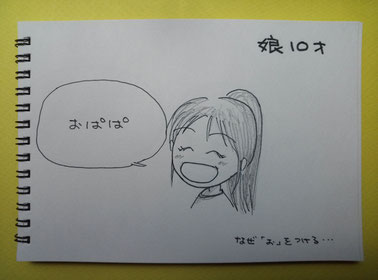 娘10才
おぱぱ
なぜ「お」をつける…